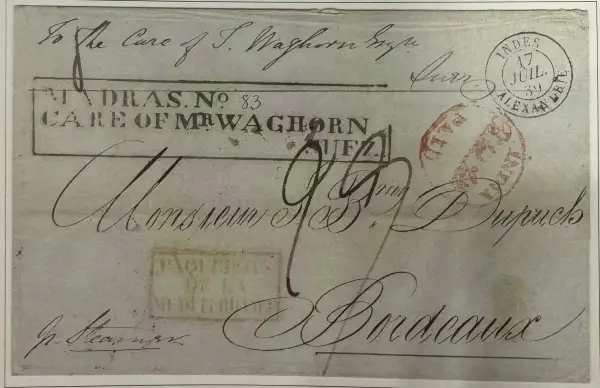 To the Care of T. Waghorn Esqr
Suez
INDES
17
JUIL.
39
ALEXANDRIE
MADRAS. No. 83
CARE OF Mr. WAGHORN
SUEZ.
PAID
Monsieur J. Bte. Dupuch
PAQUEBOTS
DE LA
MEDITERRANEE
Bordeaux
pr Steamer